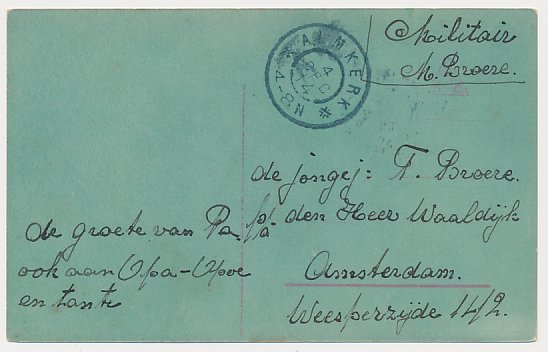 Militair
M. Broere.
ALMKERK
N8-4
de jongej: T. Broere.
p/a den Heer Waaldijk
Amsterdam.
Weesperzijde 14/2.
de groete van Pa
ook aan Opa-Opoe
en tante